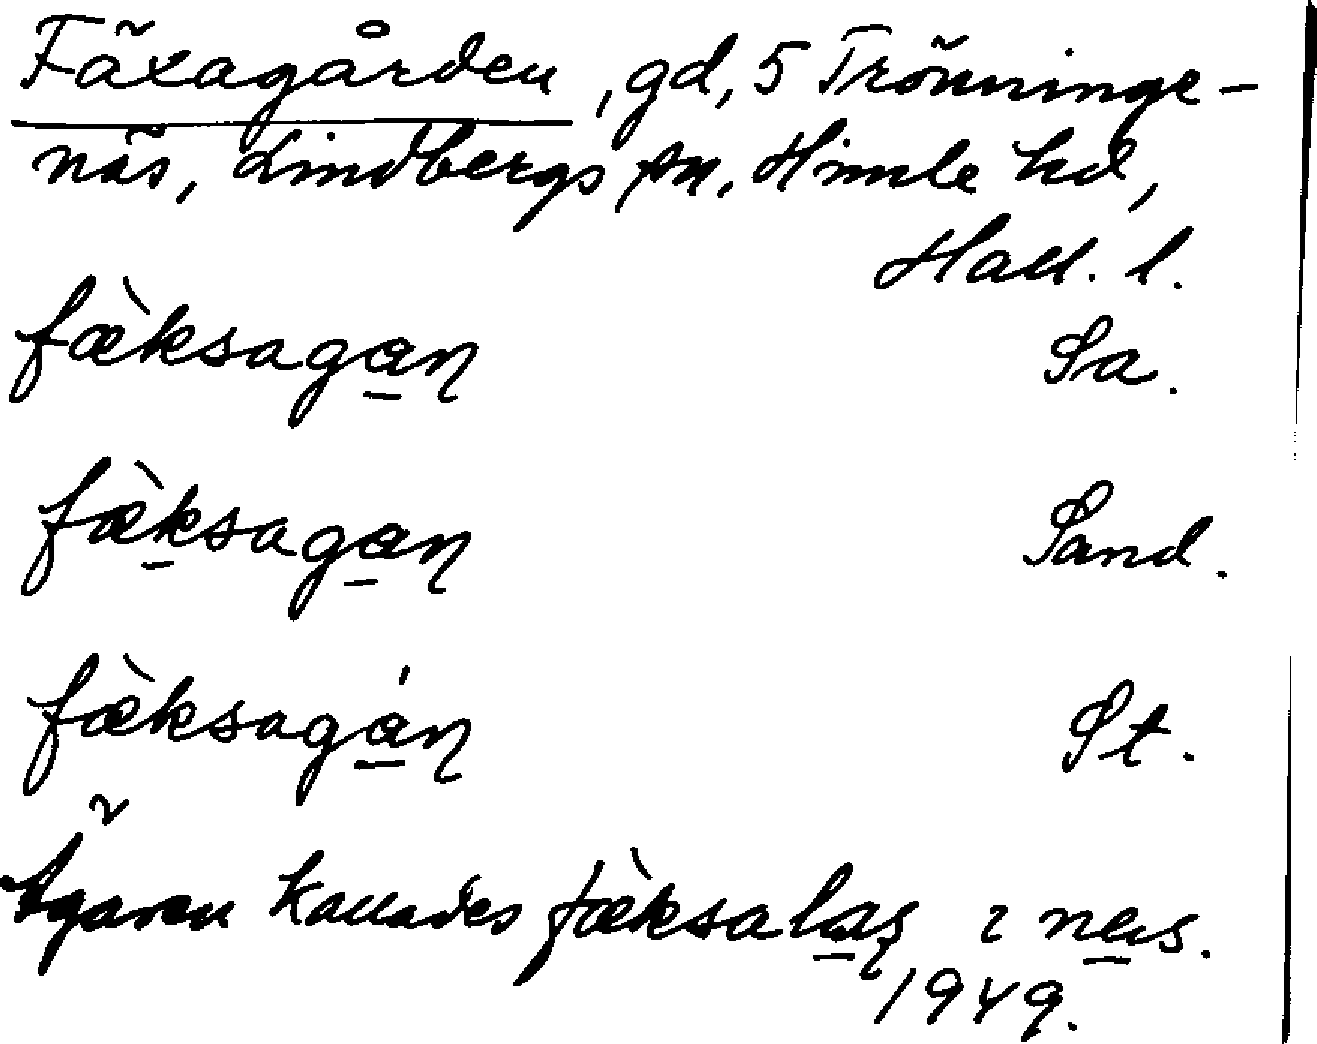 Fäxagården, gd, 5 Trönninge-
näs, Lindbergs sn, Himle hd,
Hall. l.
fæ̀ksagan̥ Sa.
fæ̀ksagan̥ Sand.
fæ̀ksagán̥ St.
Ägaren kallades fæ̀ksalas i næs.
1949.